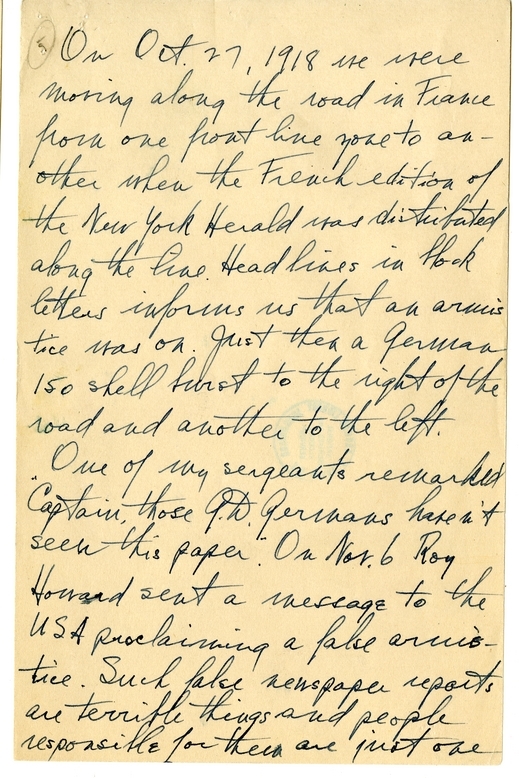 5
On Oct. 27, 1918 we were
moving along the road in France
from one front line zone to an-
other when the French edition of
the New York Herald was distributed
along the line. Headlines in block
letters informs us that an armis
tice was on. Just then a German
150 shell burst to the right of the
road and another to the left.
One of my sergeants remarked
"Captain, those G.D. Germans haven't
seen this paper." On Nov. 6 Roy
Howard sent a message to the
USA proclaiming a false armis-
tice. Such false newspaper reports
are terrible things and people
responsible for them are just one